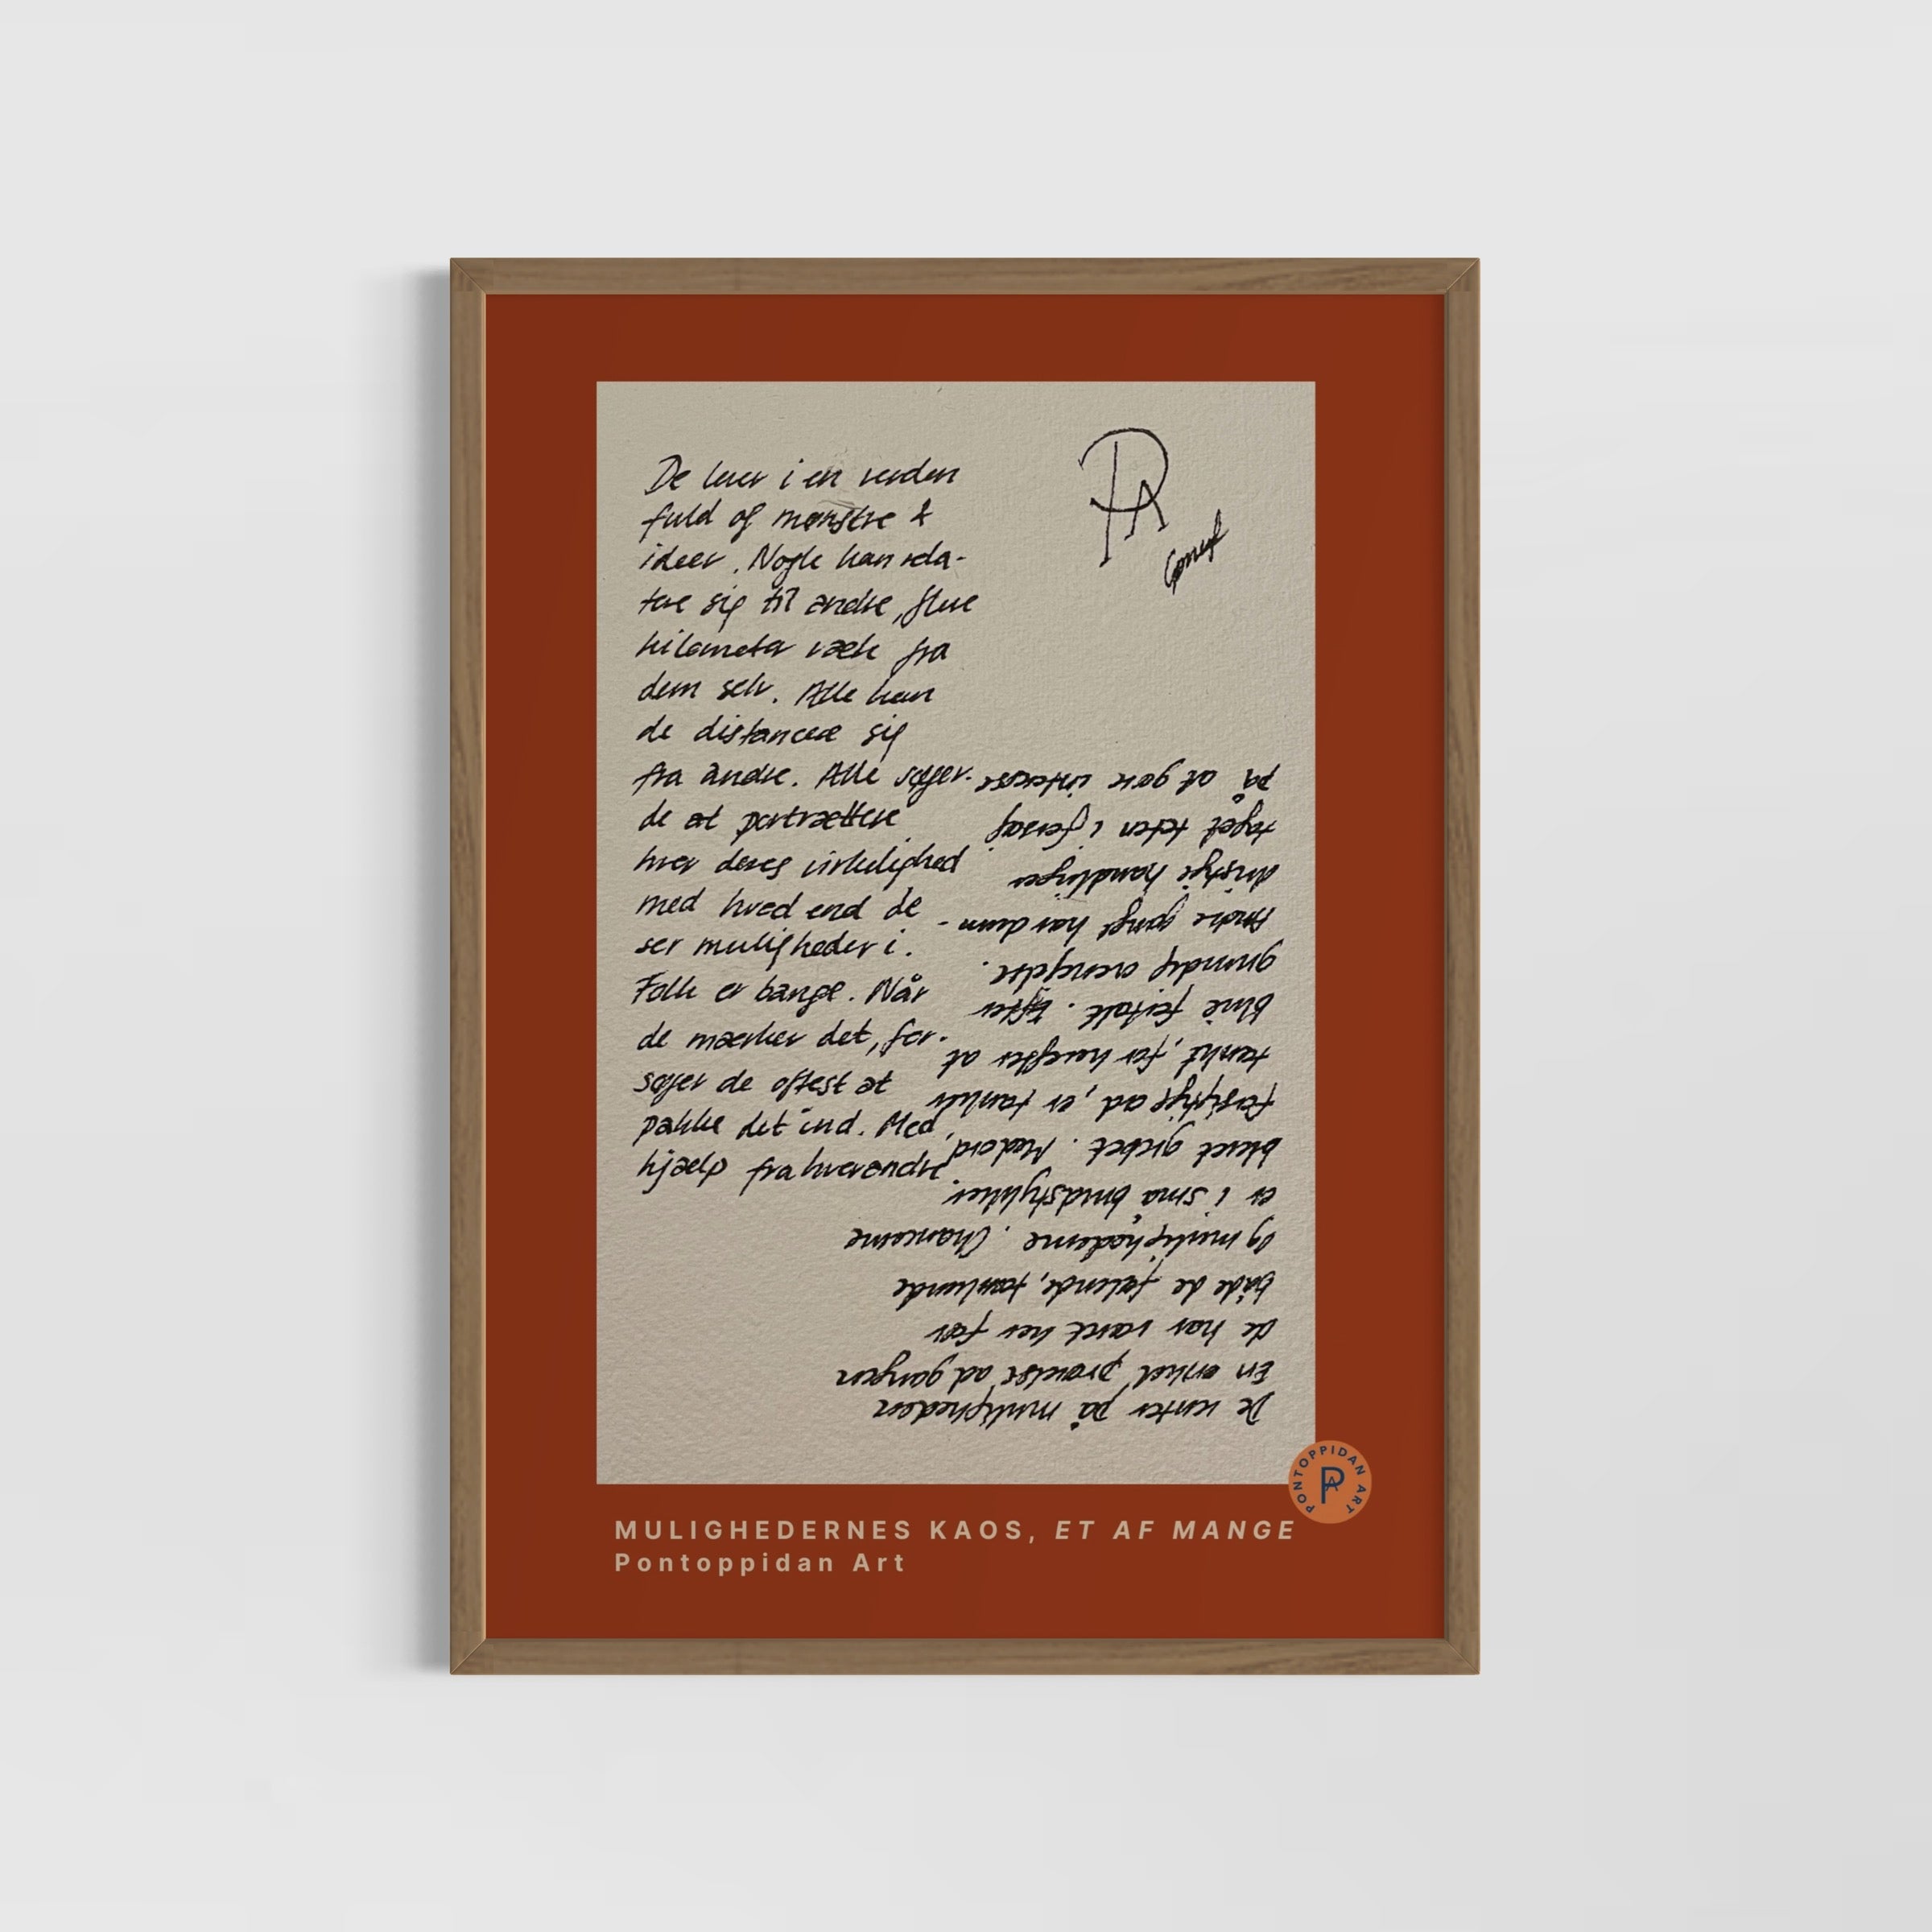 De lever i en verden
fuld af mønstre &
ideer. Nogle kan rela-
tere sig til andre, flere
kilometer væk fra
dem selv. Alle kan
de distancere sig
fra andre. Alle søger
de at portrættere
hver deres virkelighed
med hvad end de
ser muligheder i.
Folk er bange. Når
de mærker det, for-
søger de oftest at
pakke det ind. Med
hjælp fra hverandre.
PA
De venter på muligheden
En enkel prøvelse ad gangen
de har været her før
både de følende, tænkende
og mulighederne. Chancerne
er i små brudstykker
blevet grebet. Med ord,
forsigtige ad, er tanker
tænkt, for herefter at
blive fortalt. Efter
grundig overvejelse.
Andre gange har dum-
dristige handlinger
taget teten i forsøg
på at gøre interesse
PONTOPPIDAN ART
PA
MULIGHEDERNES KAOS, ET AF MANGE
Pontoppidan Art